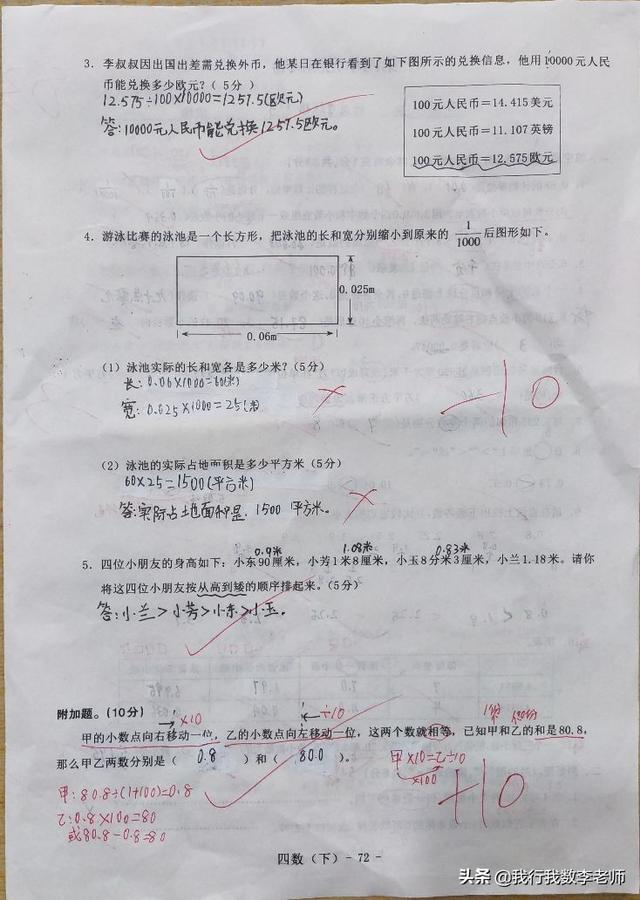 3. 李叔叔因出国出差需兑换外币，他某日在银行看到了如下图所示的兑换信息，他用10000元人民
币能兑换多少欧元？（5分）
12.575÷100×10000=1257.5(欧元)
答:10000元人民币能兑换1257.5欧元。
100元人民币=14.415美元
100元人民币=11.107英镑
100元人民币=12.575欧元
4. 游泳比赛的泳池是一个长方形，把泳池的长和宽分别缩小到原来的 1/1000 后图形如下。
0.025m
0.06m
（1）泳池实际的长和宽各是多少米？（5分）
长: 0.06×1000=60(米)
宽: 0.025×1000=25(米)
-10
（2）泳池的实际占地面积是多少平方米（5分）
60×25=1500(平方米)
答:实际占土地面积是 1500 平方米。
0.9米 1.08米 0.83米
5. 四位小朋友的身高如下：小东90厘米，小芳1米8厘米，小玉8分米3厘米，小兰1.18米。请你
将这四位小朋友按从高到矮的顺序排起来。（5分）
答:小兰>小芳>小东>小玉。
附加题。（10分）
×10 ÷10
1份 100份
甲的小数点向右移动一位，乙的小数点向左移动一位，这两个数就相等，已知甲和乙的和是80.8，
那么甲乙两数分别是（ 0.8 ）和（ 80.0 ）。
甲×10=乙÷10
×100
+10
甲: 80.8÷(1+100)=0.8
乙: 0.8×100=80
或80.8-0.8=80
四数（下）- 72 -
头条 @我行我数李老师